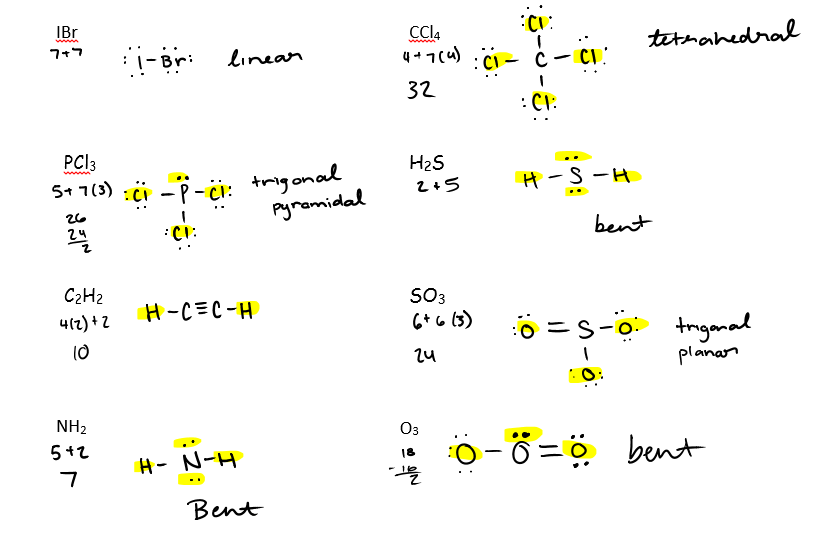 IBr
7+7
:I-Br: linear
CCl4
4+7(4)
32
Cl
:Cl-C-Cl:
:Cl:
tetrahedral
PCl3
5+7(3)
26
24
2
:Cl-P-Cl:
:Cl:
trigonal
pyramidal
H2S
2+5
H-S-H
bent
C2H2
4(2)+2
10
H-C≡C-H
SO3
6+6(3)
24
:O=S-O:
:O:
trigonal
planar
NH2
5+2
7
H-N-H
Bent
O3
18
-16
2
:O-O=O
bent